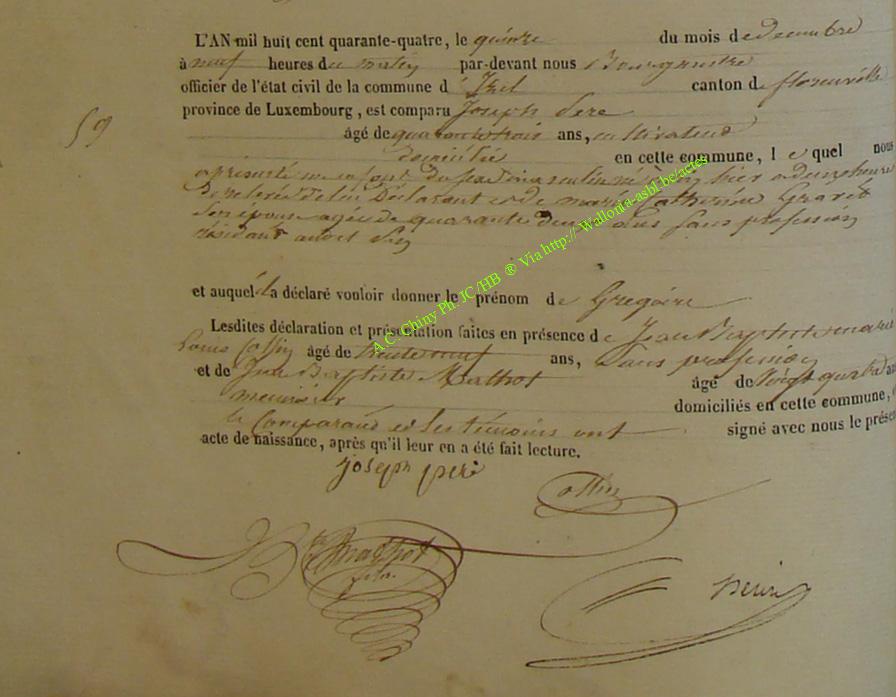 L'AN mil huit cent quarante-quatre, le quinze du mois de decembre
à neuf heures du matin par-devant nous Bourgmestre
officier de l'état civil de la commune d'Izel canton de florenville
province de Luxembourg, est comparu Joseph Pere
59
âgé de quarante trois ans, cultivateur
domicilié en cette commune, le quel nous
a présenté un enfant du sexe masculin né hier a deux heure
de relevée de lui Déclarant et de marie Catherine
son épouse agée de quarante deux ans sans profession
résidant
et auquel il a déclaré vouloir donner le prénom de Grégoire
Lesdites déclaration et présentation faites en présence de Jean Baptiste marie
Louis Collin âgé de trente neuf ans, sans profession
et de Jean Baptiste Mathot âgé de vingt quatre ans
meunier domiciliés en cette commune,
le Comparant et les témoins ont signé avec nous le présent
acte de naissance, après qu'il leur en a été fait lecture.
joseph pere
Collin
Mathot
A.C. Chiny Ph. JC/HB ® Via http://Wallonia-asbl.be/actes